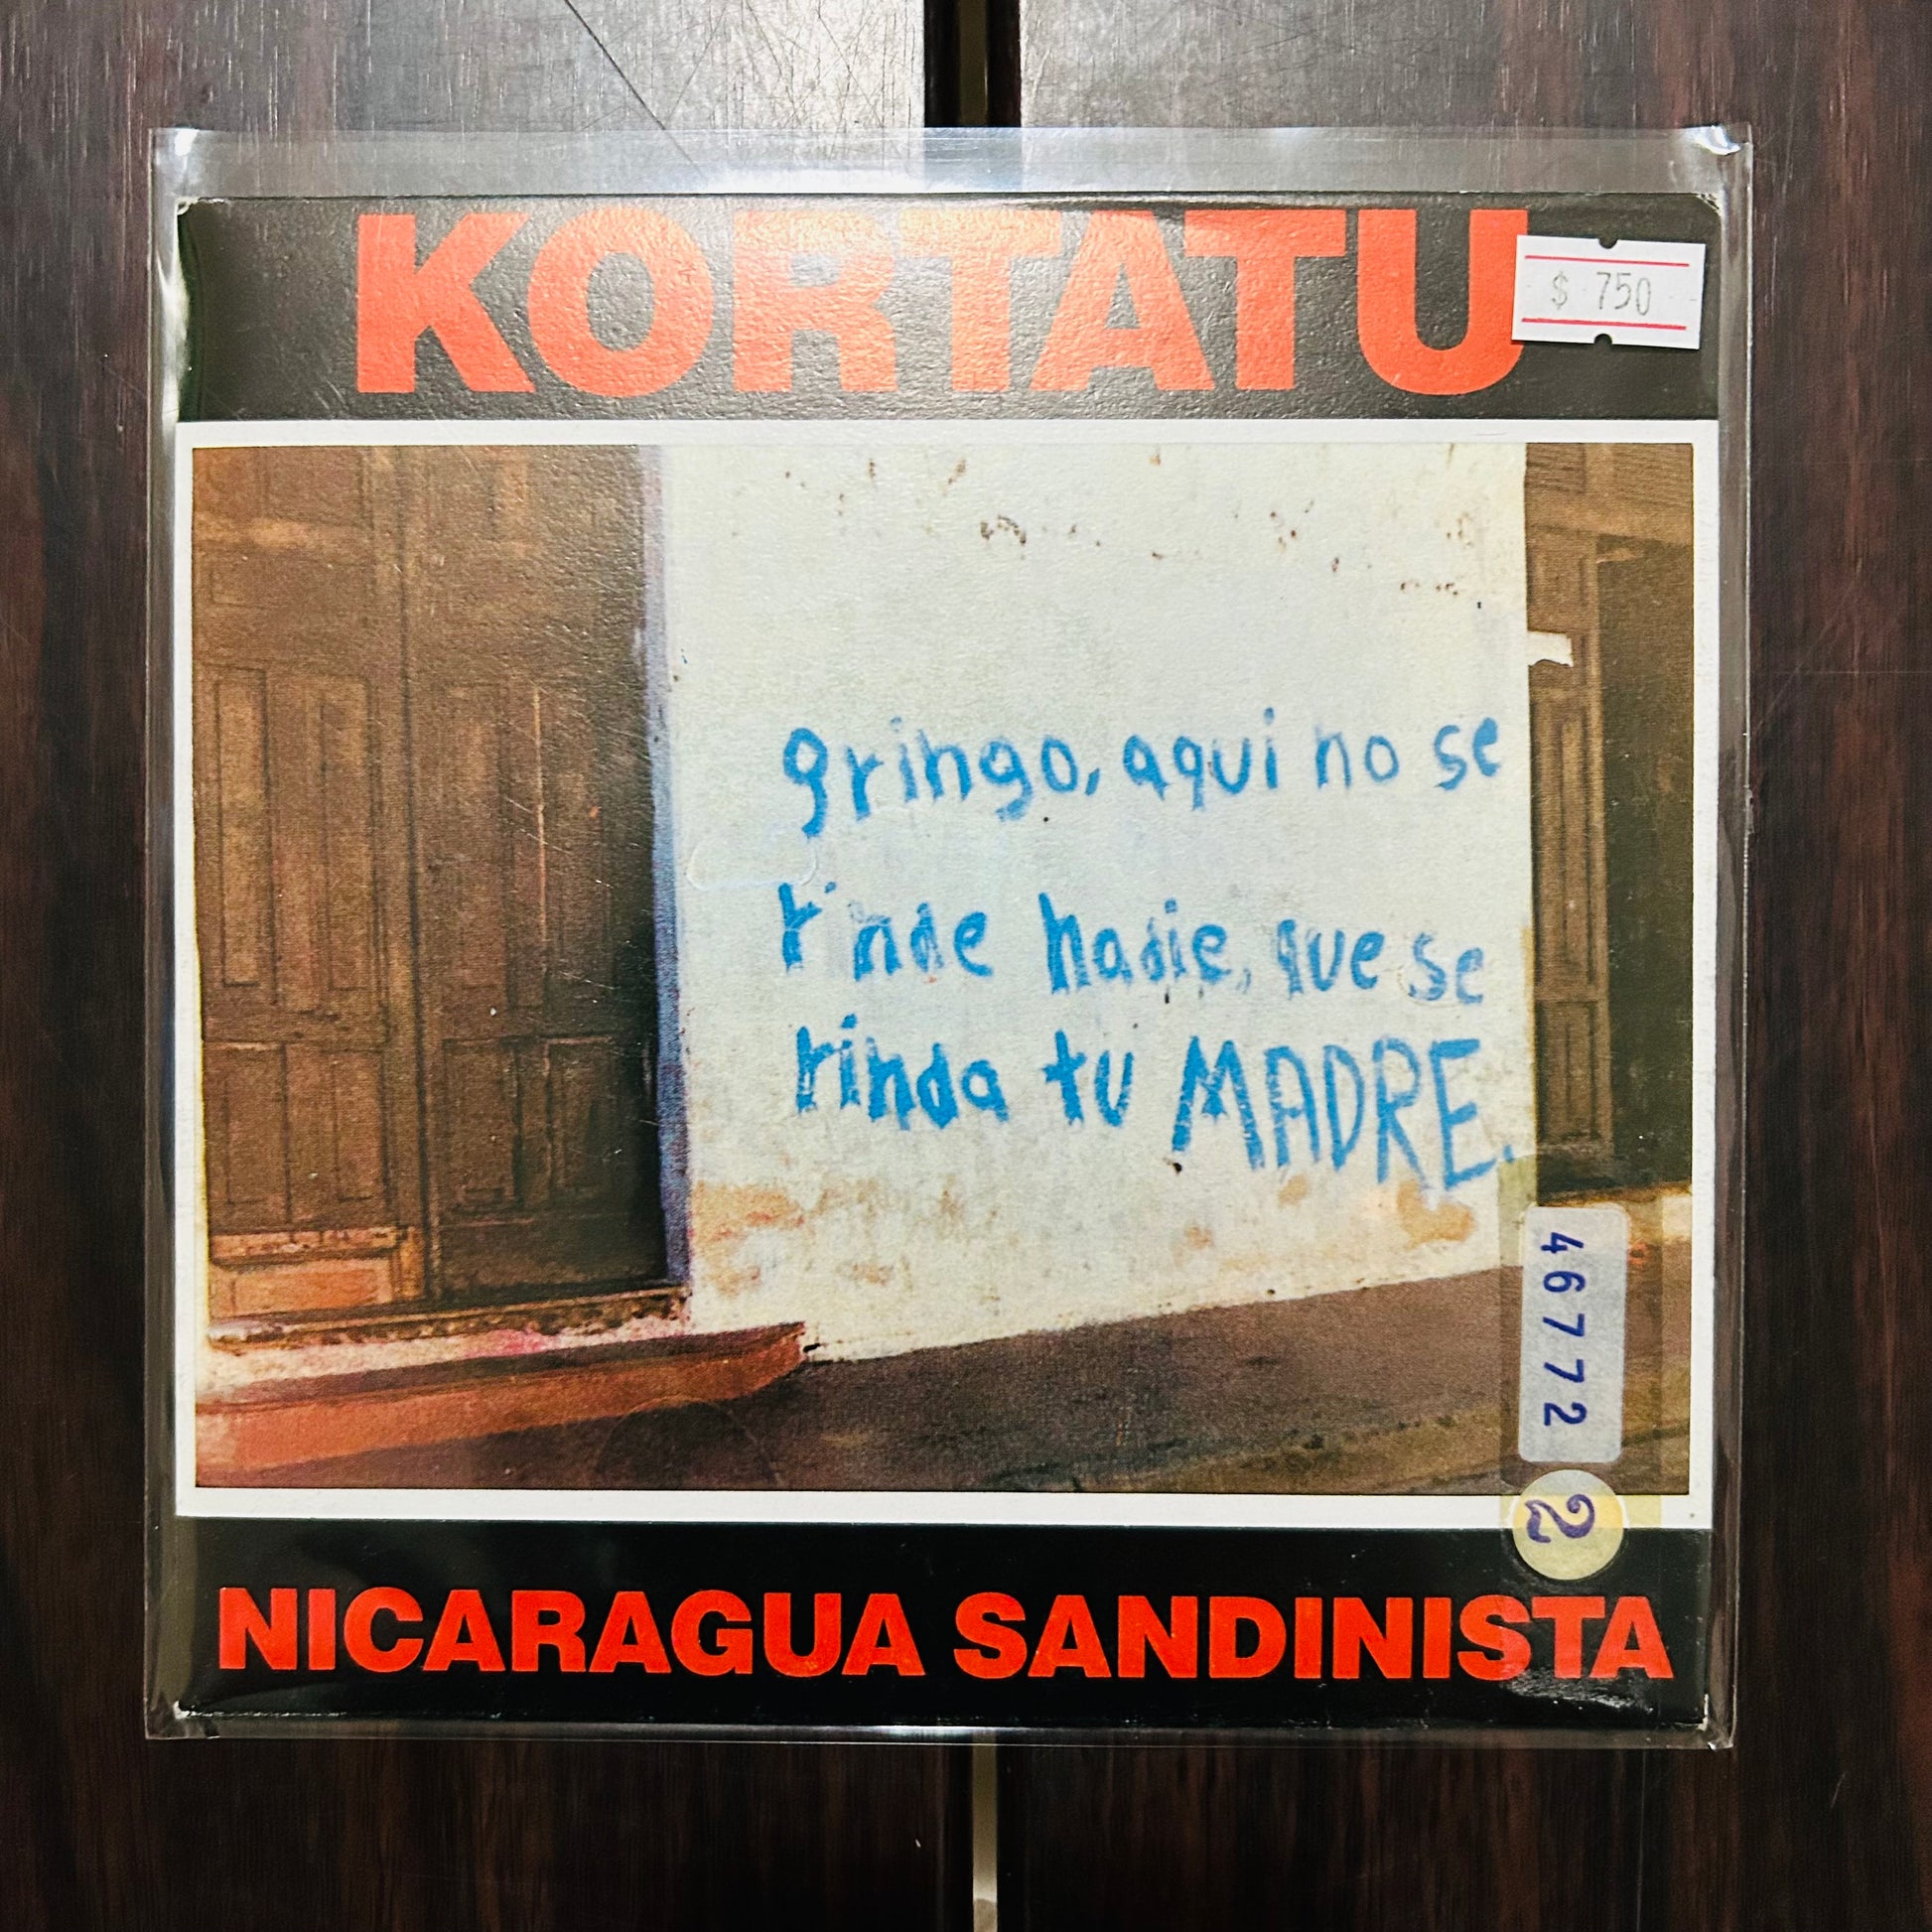 KORTATU
$ 750
gringo, aqui no se
rinde nadie, que se
rinda tu MADRE.
46772
2
NICARAGUA SANDINISTA